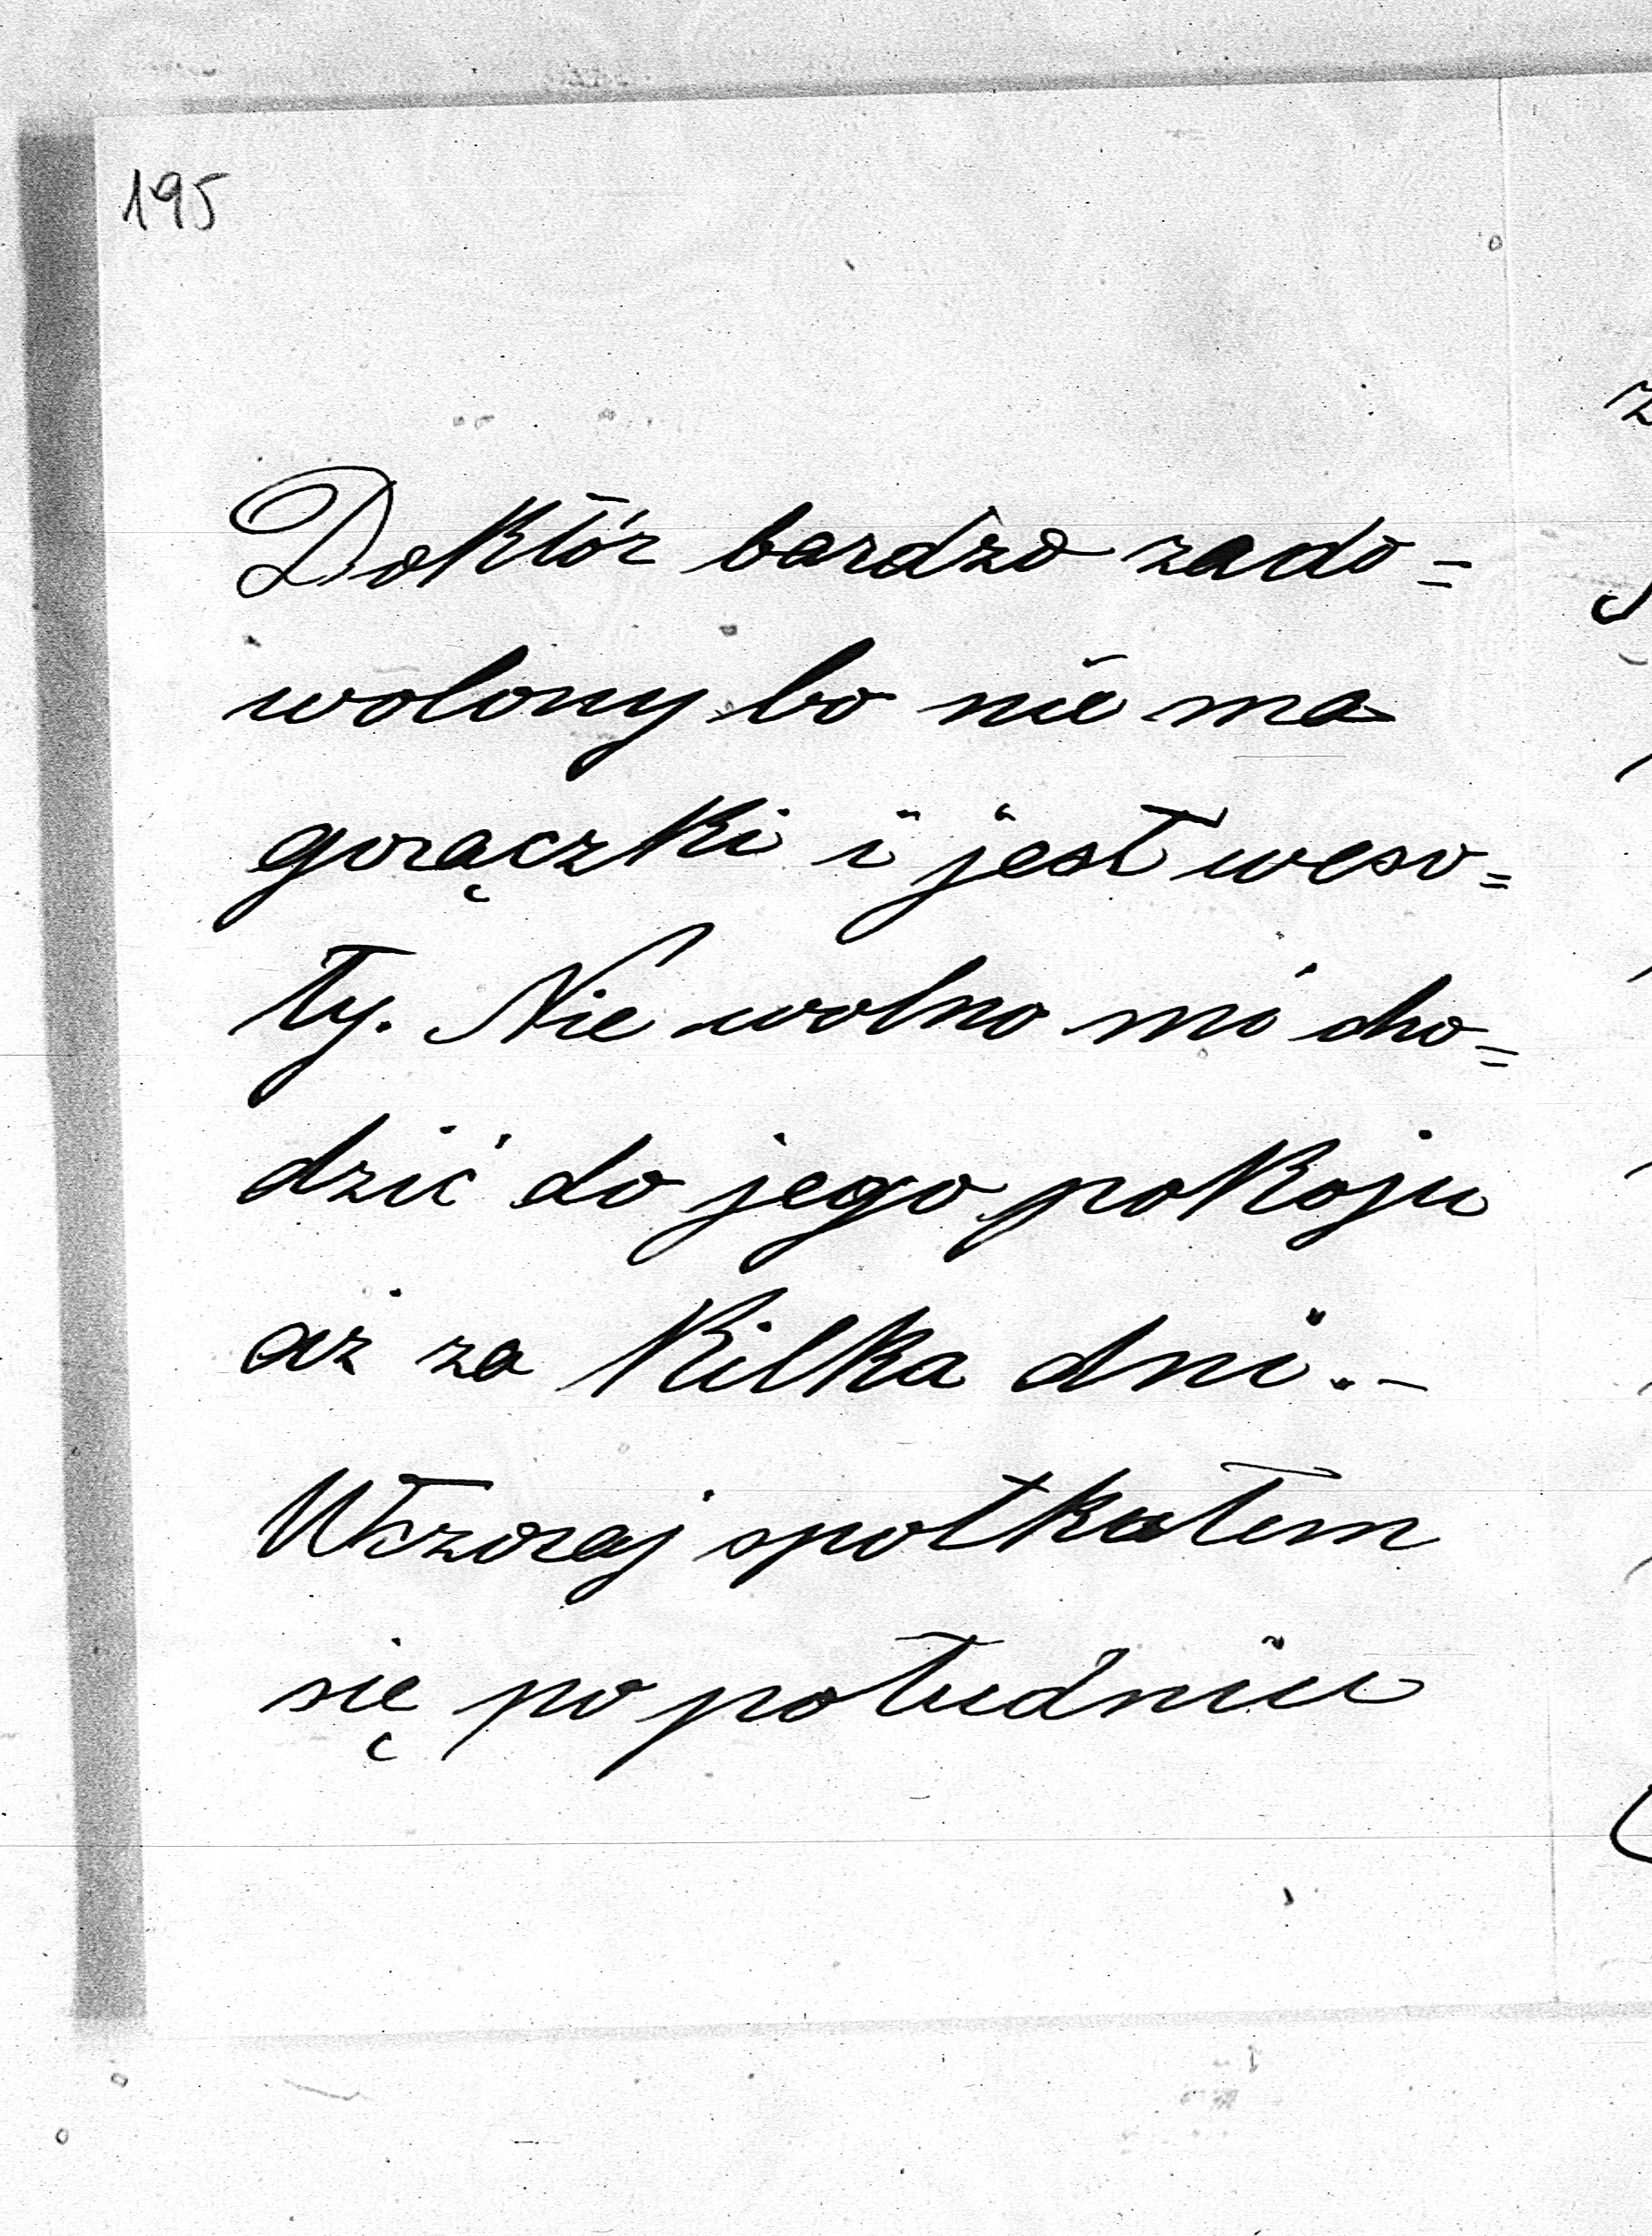 195
Doktór bardzo zado=
wolony bo nie ma
gorączki i jest weso=
ły. Nie wolno mi cho=
dzić do jego pokoju
aż za kilka dni.-
Wczoraj spotkałem
się po południu